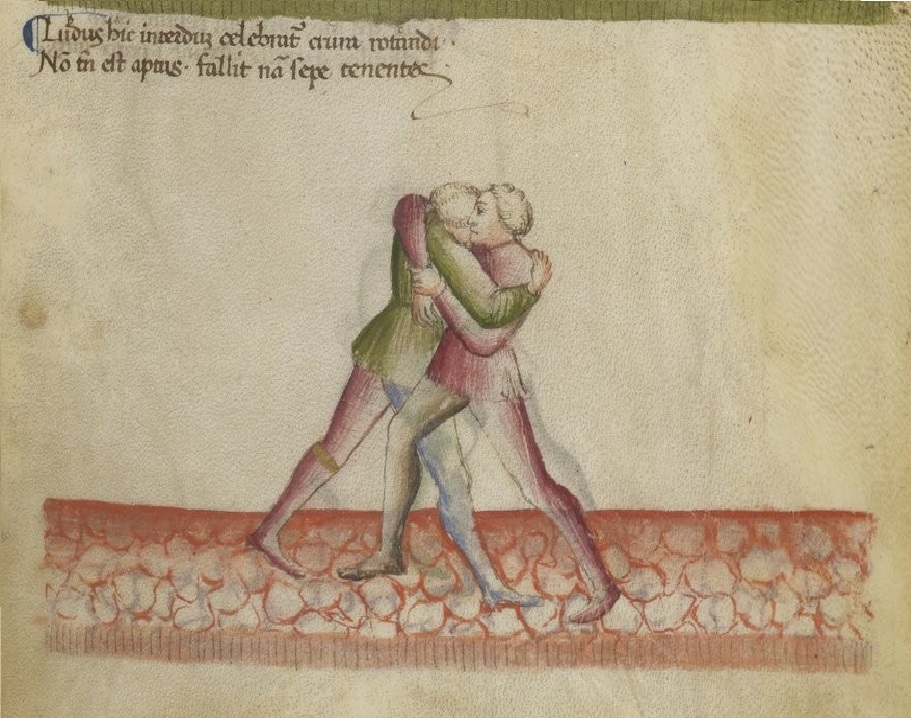 Ludus hic interduʒ celebrat᷑ crura rotandi ·
Nō tn̄ est aptus · fallit nā sepe tenentes